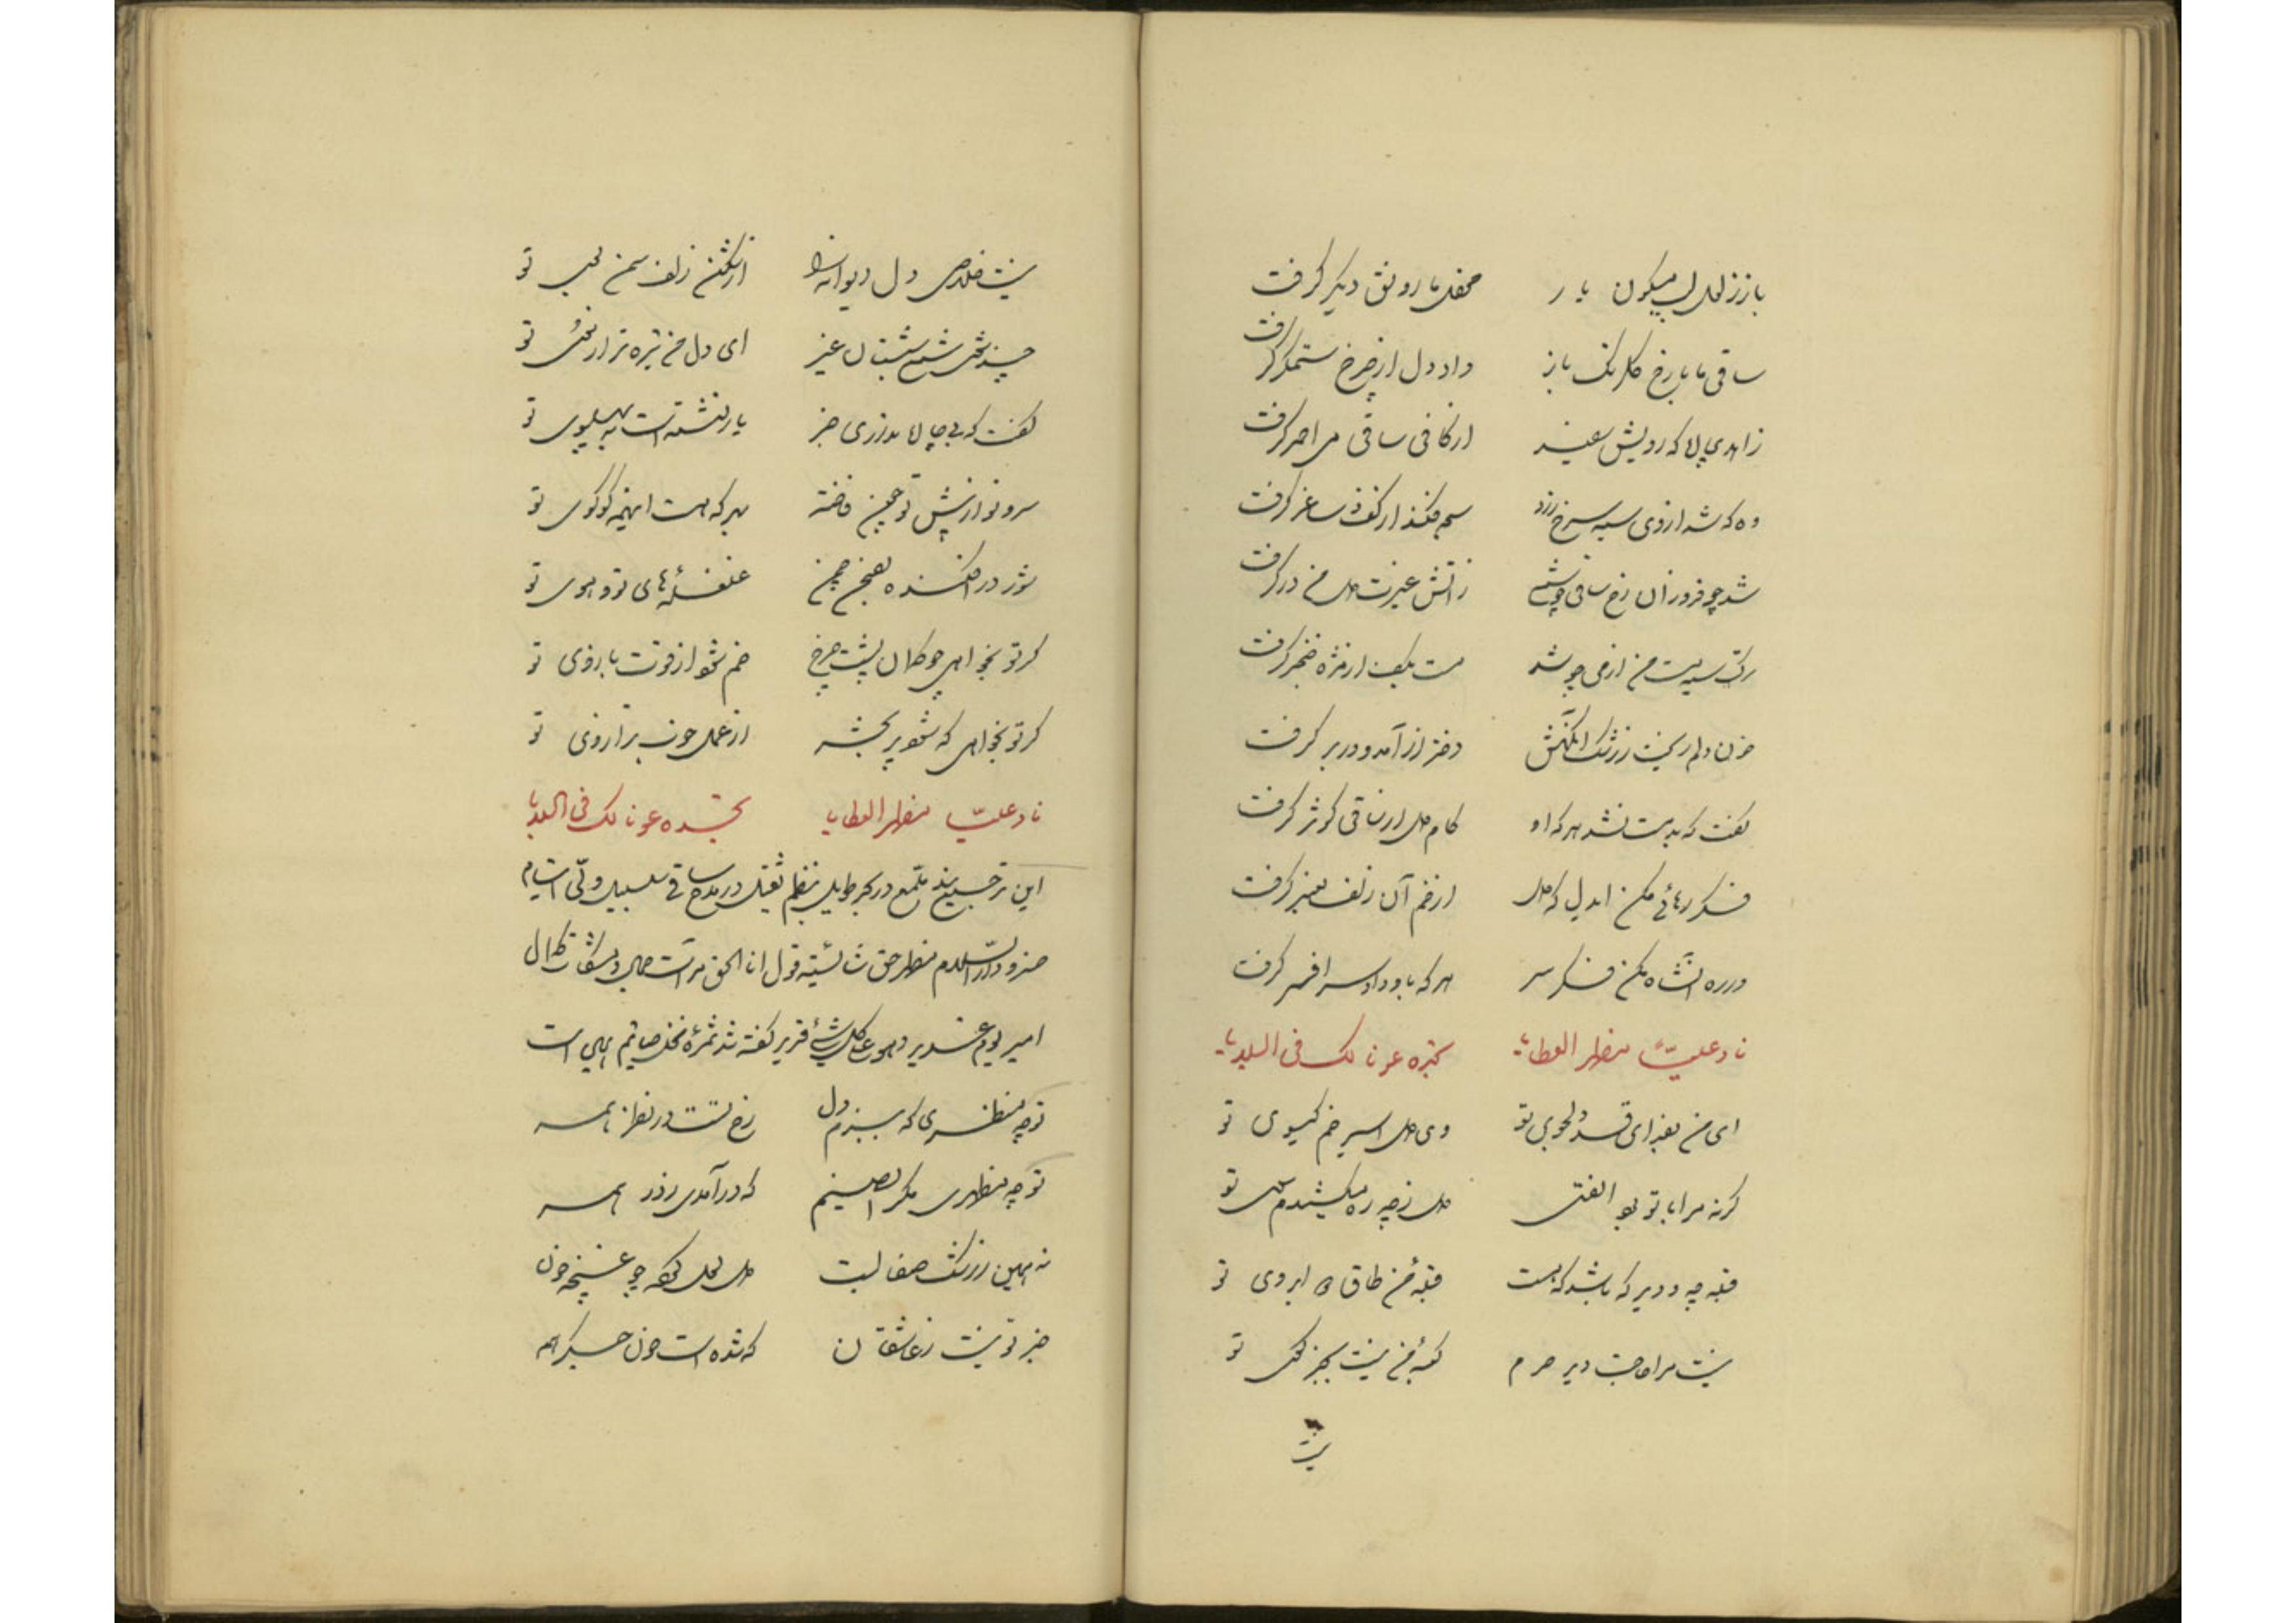 باز ز لعل لب میگون یار محفل ما رونق دیگر گرفت
ساقی ما با رخ گلرنگ باز داد دل از چرخ ستمگر گرفت
زاهدی پالا که رویش سفید از کف ساقی می احمر گرفت
وه که شد از روی سیه سرخ زرد سبحه فکند از کف و ساغر گرفت
شد چو فروزان رخ ساقی چو شمع ز آتش غیرت دل من در گرفت
ترک سیه مست من از می چو شد مست بکف از مژه خنجر گرفت
خون دلم ریخت ز رشک آنکهش دختر رز آمد و در بر گرفت
گفت که بدمست نشد هر که او کام دل از ساقی کوثر گرفت
فکر رهائی مکن ایدل که دل از خم آن زلف معنبر گرفت
در ره آن شاه مکن فکر سر هر که باو داد سر افسر گرفت
ناد علیاً مظهر العطایا تجده عونا لک فی البلایا
ای من بفدای قد دلجوی تو وی دل اسیر خم گیسوی تو
گرنه مرا با تو بود الفتی دل ز چه ره میکشدم سوی تو
قبله چه و دیر که باشد که هست قبله من طاق دو ابروی تو
نیست مرا حاجت دیر و حرم کعبه من نیست بجز کوی تو
نیست
نیست خلاص دل دیوانه را از شکن زلف سمن بوی تو
چند شوی شمع شبستان غیر ای دل من تیره تر از موی تو
گفت که بی جا لا بد زدی جز یار نشسته است به پهلوی تو
سرو نواز پیش تو چون فاخته هر که هست اینهمه کوکوی تو
شور در افکنده بصحن چمن غلغله های تو و هوی تو
گر تو بخواهی چو کمان پشت چرخ خم شود از قوت بازوی تو
گر تو بخواهی که شود پر بجشه از عمل خود ترازوی تو
ناد علیّاً مظهر العطایا تجده عونا لک فی البلایا
این ترجیع بند ملمع در بحر طویل بنظم ثقیل در مدح ساقی سلسبیل ولی
مظهر حق شایسته قول انا الحق مرآت جمال و مشکات کمال
امیر یوم غدیر و هو علی کل شیء قدیر گفته شد ثمره نخل این است
تو چه منظری که ببزم دل رخ تست در نظر همه
تو چه مظهری مگر ای صنم که در آمدی ز در همه
نه همین ز رشک صفا لبت دل لعل گشته چو غنچه خون
جز تو نیست ز عاشقان که شده است خون جگر همه